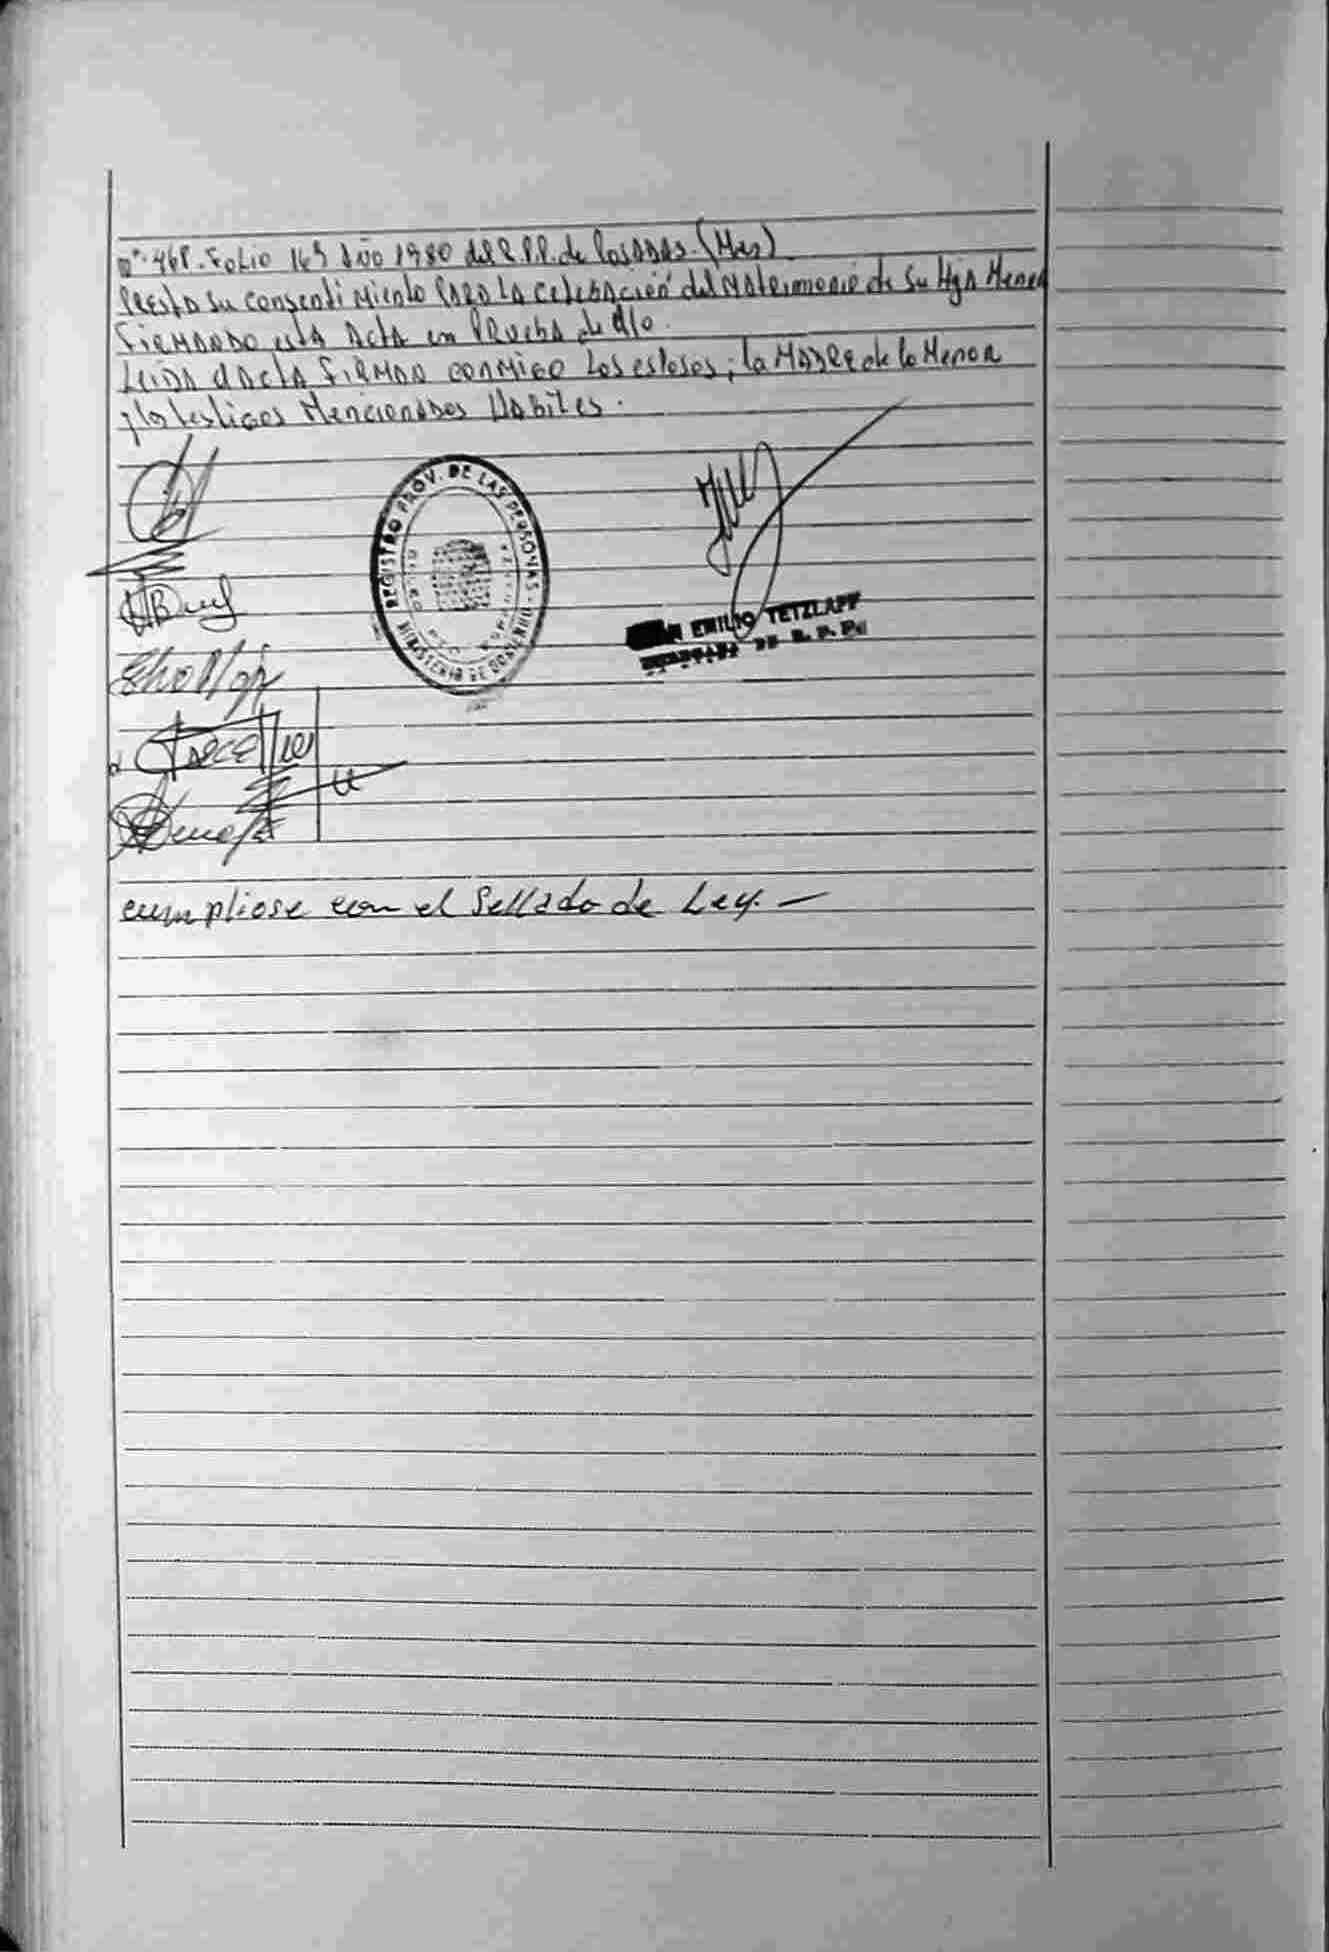 Folio 169 Año 1980 del R.P.P. de Posadas. (Mns)
Presta su consentimiento para la celebración del Matrimonio de su Hija Menor
firmando esta Acta en Prueba de ello.
Leida el acta firman conmigo los esposos; la Madre de la Menor
y los testigos Mencionados Habiles.
REGISTRO PROV. DE LAS PERSONAS
MINISTERIO DE GOBIERNO
EMILIO TETZLAFF
DE R. P. P.
cumpliose con el Sellado de Ley. —